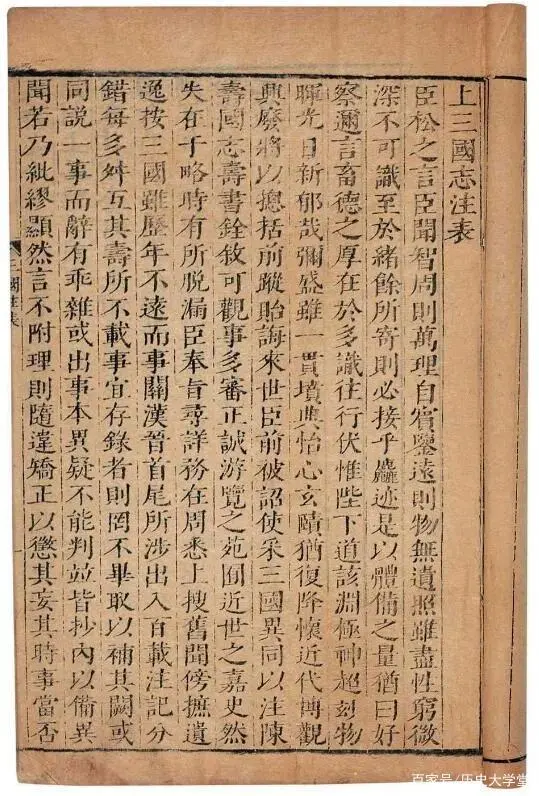 上三國志注表
臣松之言臣聞智周則萬理自賓鑒遠則物無遺照雖盡性窮微
深不可識至於緒餘所寄則必接乎麤迹是以體備之量猶曰好
察邇言畜德之厚在於多識往行伏惟陛下道該淵極神超妙物
暉光日新郁哉彌盛雖一貫墳典怡心玄賾猶復降懷近代博觀
興廢將以揔括前蹤貽誨來世臣前被詔使采三國異同以注陳
壽國志壽書銓敘可觀事多審正誠游覽之苑囿近世之嘉史然
失在于略時有所脫漏臣奉旨尋詳務在周悉上搜舊聞傍摭遺
逸按三國雖歷年不遠而事關漢晉首尾所涉出入百載注記分
錯每多舛互其壽所不載事宜存錄者則罔不畢取以補其闕或
同說一事而辭有乖雜或出事本異疑不能判並皆抄內以備異
聞若乃紕繆顯然言不附理則隨違矯正以懲其妄其時事當否
國注表
百家号/历史大学堂